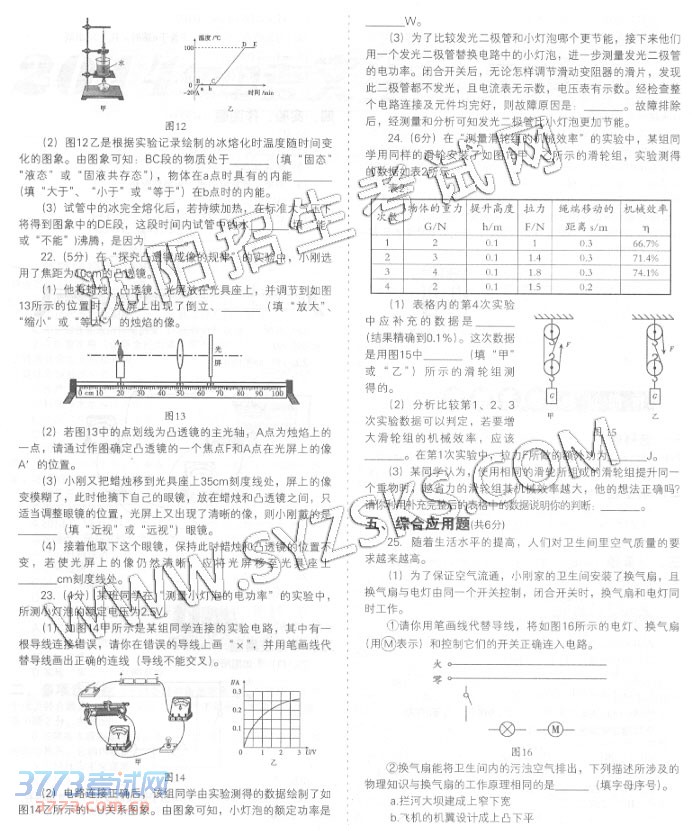 温度/℃
100
D E
0
-20
A B C
时间/min
水
甲
乙
图12
(2) 图12乙是根据实验记录绘制的冰熔化时温度随时间变
化的图象。由图象可知: BC段的物质处于______ (填“固态”
“液态”或“固液共存态”), 物体在a点时具有的内能______
(填“大于”、“小于”或“等于”) 在b点时的内能。
(3) 试管中的冰完全熔化后, 若持续加热, 在标准大气压下
将得到图象中的DE段, 这段时间内试管中的水______ (填“能”
或“不能”)沸腾, 是因为
22. (5分) 在“探究凸透镜成像的规律”的实验中, 小刚选
用了焦距为10cm的凸透镜。
(1) 他将蜡烛、凸透镜、光屏放在光具座上, 并调节到如图
13所示的位置时, 光屏上出现了倒立、______ (填“放大”、
“缩小”或“等大”) 的烛焰的像。
A
光
屏
0 cm 10 20 30 40 50 60 70 80 90 100
图13
(2) 若图13中的点划线为凸透镜的主光轴, A点为烛焰上的
一点, 请通过作图确定凸透镜的一个焦点F和A点在光屏上的像
A′ 的位置。
(3) 小刚又把蜡烛移到光具座上35cm刻度线处, 屏上的像
变模糊了, 此时他摘下自己的眼镜, 放在蜡烛和凸透镜之间, 只
适当调整眼镜的位置, 光屏上又出现了清晰的像, 则小刚戴的是
______ (填“近视”或“远视”) 眼镜。
(4) 接着他取下这个眼镜, 保持此时蜡烛和凸透镜的位置不
变, 若使光屏上的像仍然清晰, 应将光屏移至光具座上
______cm刻度线处。
23. (4分) 某班同学在“测量小灯泡的电功率”的实验中,
所测小灯泡的额定电压为2.5V。
(1) 如图14甲所示是某组同学连接的实验电路, 其中有一
根导线连接错误, 请你在错误的导线上画“×”, 并用笔画线代
替导线画出正确的连线 (导线不能交叉)。
I/A
0.3
0.2
0.1
0 1 2 3 U/V
甲
乙
图14
(2) 电路连接正确后, 该组同学由实验测得的数据绘制了如
图14乙所示的I-U关系图象。由图象可知, 小灯泡的额定功率是
______W。
(3) 为了比较发光二极管和小灯泡哪个更节能, 接下来他们
用一个发光二极管替换电路中的小灯泡, 进一步测量发光二极管
的电功率。闭合开关后, 无论怎样调节滑动变阻器的滑片, 发现
此二极管都不发光, 且电流表无示数, 电压表有示数。经检查整
个电路连接及元件均完好, 则故障原因是: ______。故障排除
后, 经测量和分析可知发光二极管比小灯泡更加节能。
24. (6分) 在“测量滑轮组的机械效率”的实验中, 某组同
学用同样的滑轮安装了如图15甲、乙所示的滑轮组, 实验测得
的数据如表2所示。
表2
次数 物体的重力G/N 提升高度h/m 拉力F/N 绳端移动的距离 s/m 机械效率η
1 2 0.1 1 0.3 66.7%
2 3 0.1 1.4 0.3 71.4%
3 4 0.1 1.8 0.3 74.1%
4 2 0.1 1.5 0.2
(1) 表格内的第4次实验
中应补充的数据是______
(结果精确到0.1%)。这次数据
是用图15中______ (填“甲”
或“乙”) 所示的滑轮组测
得的。
(2) 分析比较第1、2、3
次实验数据可以判定, 若要增
大滑轮组的机械效率, 应该
______。在第1次实验中, 拉力F所做的额外功为______J。
F
G
甲
F
G
乙
图15
(3) 某同学认为, 使用相同的滑轮所组成的滑轮组提升同一
个重物时, 越省力的滑轮组其机械效率越大, 他的想法正确吗?
请你利用补充完整后的表格中的数据说明你的判断: ______。
五、综合应用题(共6分)
25. 随着生活水平的提高, 人们对卫生间里空气质量的要
求越来越高。
(1) 为了保证空气流通, 小刚家的卫生间安装了换气扇, 且
换气扇与电灯由同一个开关控制, 闭合开关时, 换气扇和电灯同
时工作。
①请你用笔画线代替导线, 将如图16所示的电灯、换气扇
(用Ⓜ表示) 和控制它们的开关正确连入电路。
火
零
M
图16
②换气扇能将卫生间内的污浊空气排出, 下列描述所涉及的
物理知识与换气扇的工作原理相同的是______ (填写字母序号)。
a.拦河大坝建成上窄下宽
b.飞机的机翼设计成上凸下平
沈阳招生考试网
WWW.SYZSKS.COM
3773考试网
3773.com.cn